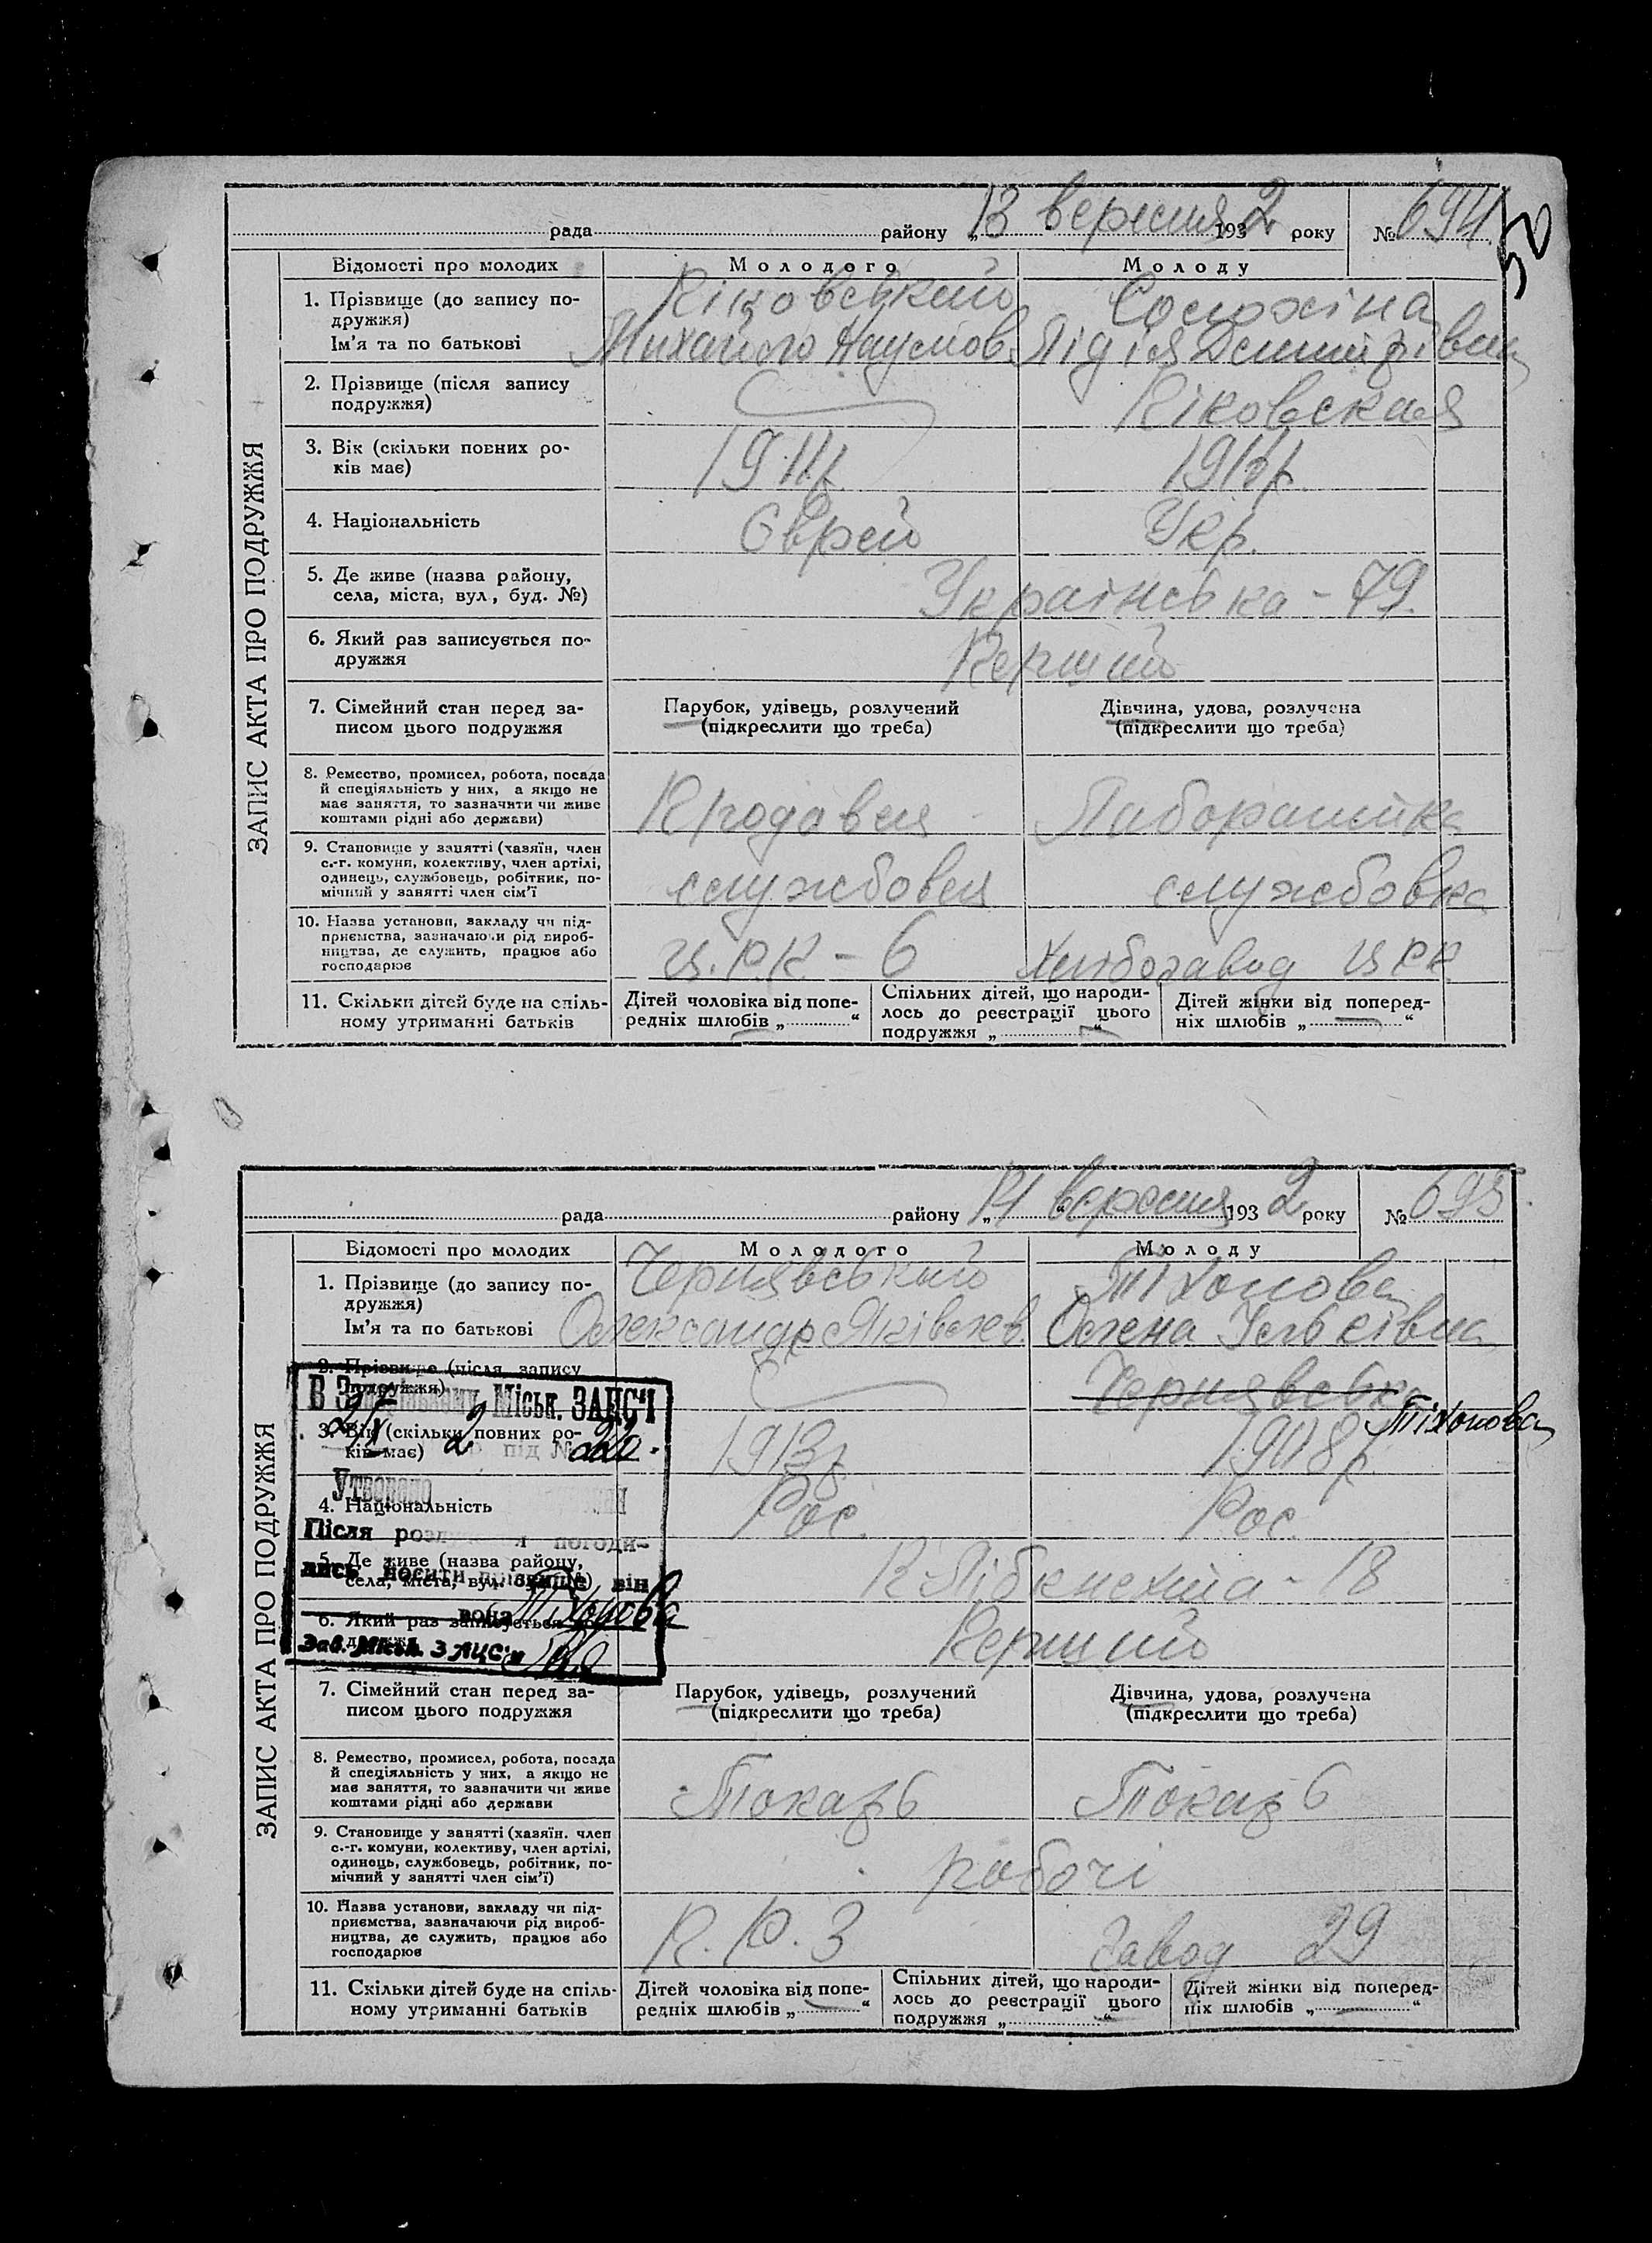 50
рада району „13 вересня 1932 року № 694
ЗАПИС АКТА ПРО ПОДРУЖЖЯ
Відомості про молодих Молодого Молоду
1. Прізвище (до запису по-
дружжя)
Ім'я та по батькові
Ріковський
Михайло Наумов.
Солохіна
Лідія Дмитрівна
2. Прізвище (після запису
подружжя)
Ріковская
3. Вік (скільки повних ро-
ків має)
1911р. 191 р.
4. Національність
Єврей Укр.
5. Де живе (назва району,
села, міста, вул, буд. №)
Українська - 79.
6. Який раз записується по-
дружжя
Перший
7. Сімейний стан перед за-
писом цього подружжя
Парубок, удівець, розлучений
(підкреслити що треба)
Дівчина, удова, розлучена
(підкреслити що треба)
8. Ремество, промисел, робота, посада
й спеціяльність у них, а якщо не
має заняття, то зазначити чи живе
коштами рідні або держави)
Продавец Лаборантка
9. Становище у занятті (хазяїн, член
с.-г. комуни, колективу, член артілі,
одинець, службовець, робітник, по-
мічний у занятті член сім'ї
службовец службовка
10. Назва установи, закладу чи під-
приємства, зазначаючи рід вироб-
ництва, де служить, працює або
господарює
Ц.Р.К - 6 Хлібозавод ЦРК
11. Скільки дітей буде на спіль-
ному утриманні батьків
Дітей чоловіка від попе-
редніх шлюбів „ “
Спільних дітей, що народи-
лось до реєстрації цього
подружжя „ “
Дітей жінки від поперед-
ніх шлюбів „ “
рада району „14 вересня 1932 року № 695
ЗАПИС АКТА ПРО ПОДРУЖЖЯ
Відомості про молодих Молодого Молоду
1. Прізвище (до запису по-
дружжя)
Ім'я та по батькові
Чернявський
Олександр Яківлев.
Тіхонова
Олена
2. Прізвище (після запису
подружжя)
Чернявська
Тіхонова
3. Вік (скільки повних ро-
ків має)
1913р 1908р
4. Національність
Рос. Рос.
5. Де живе (назва району,
села, міста, вул. буд. №)
К Лібкнехта - 18
6. Який раз записується по-
дружжя
Перший
В Міськ. ЗАПС'і
під №
Утворено
Після погоди-
лись носити прізвище він
вона Тіхонова
Зав. Міськ. ЗАЦС'у
7. Сімейний стан перед за-
писом цього подружжя
Парубок, удівець, розлучений
(підкреслити що треба)
Дівчина, удова, розлучена
(підкреслити що треба)
8. Ремество, промисел, робота, посада
й спеціяльність у них, а якщо не
має заняття, то зазначити чи живе
коштами рідні або держави
Токарь Токарь
9. Становище у занятті (хазяїн. член
с.-г. комуни, колективу, член артілі,
одинець, службовець, робітник, по-
мічний у занятті член сім'ї)
робочі
10. Назва установи, закладу чи під-
приємства, зазначаючи рід вироб-
ництва, де служить, працює або
господарює
П.Р.З Завод 29
11. Скільки дітей буде на спіль-
ному утриманні батьків
Дітей чоловіка від попе-
редніх шлюбів „ “
Спільних дітей, що народи-
лось до реєстрації цього
подружжя „ “
Дітей жінки від поперед-
ніх шлюбів „ “